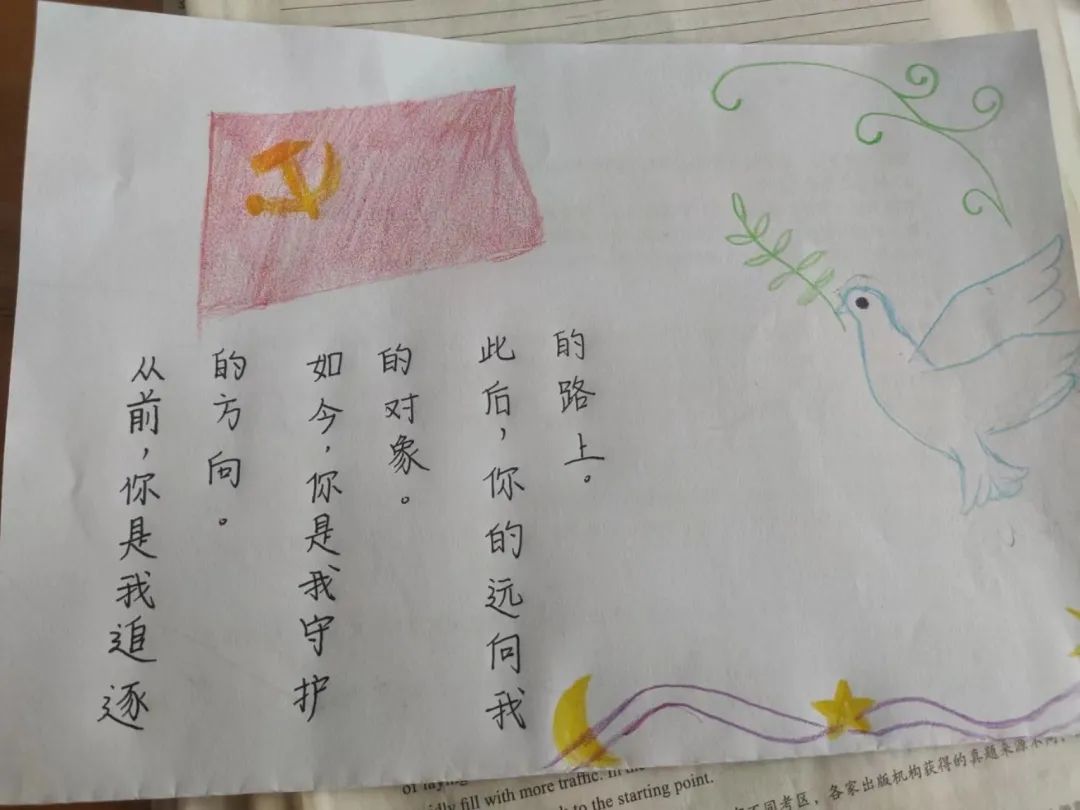 从前，你是我追逐
的方向。
如今，你是我守护
的对象。
此后，你的远向我
的路上。
of laying
fill with more traffic. In
to the starting point.
不同考区，各家出版机构获得的真题来源不同，